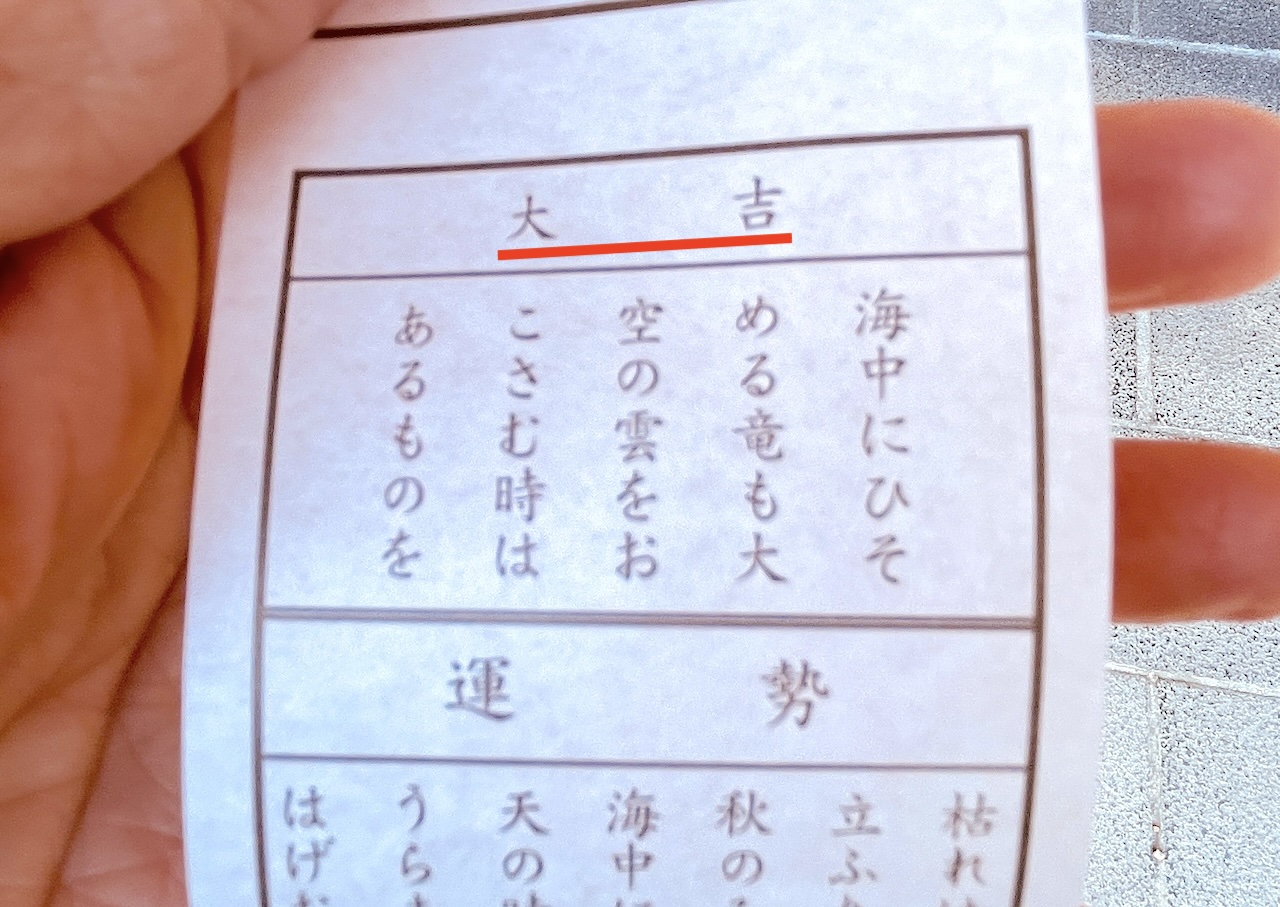 大吉
海中にひそ
める竜も大
空の雲をお
こさむ時は
あるものを
運勢
枯れ
立ふ
秋の
海中に
天の時
うら
はげ